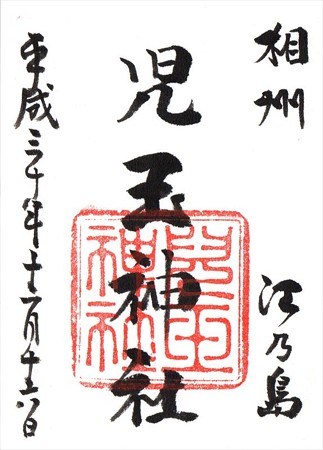 相州
江乃島
児玉神社
兒玉
神社
平成三十年十一月十六日